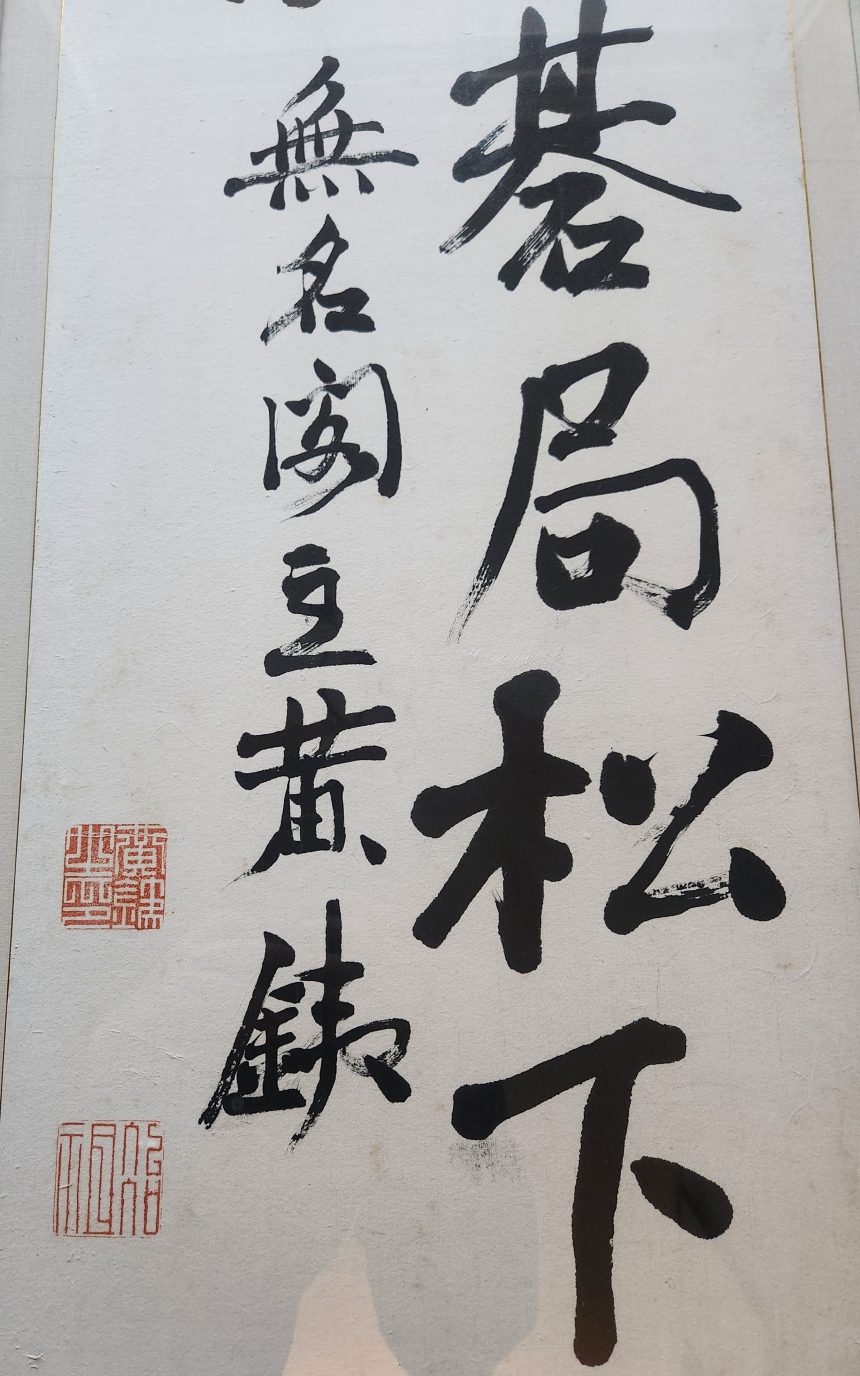 碁局松下
無名閣主黄銕